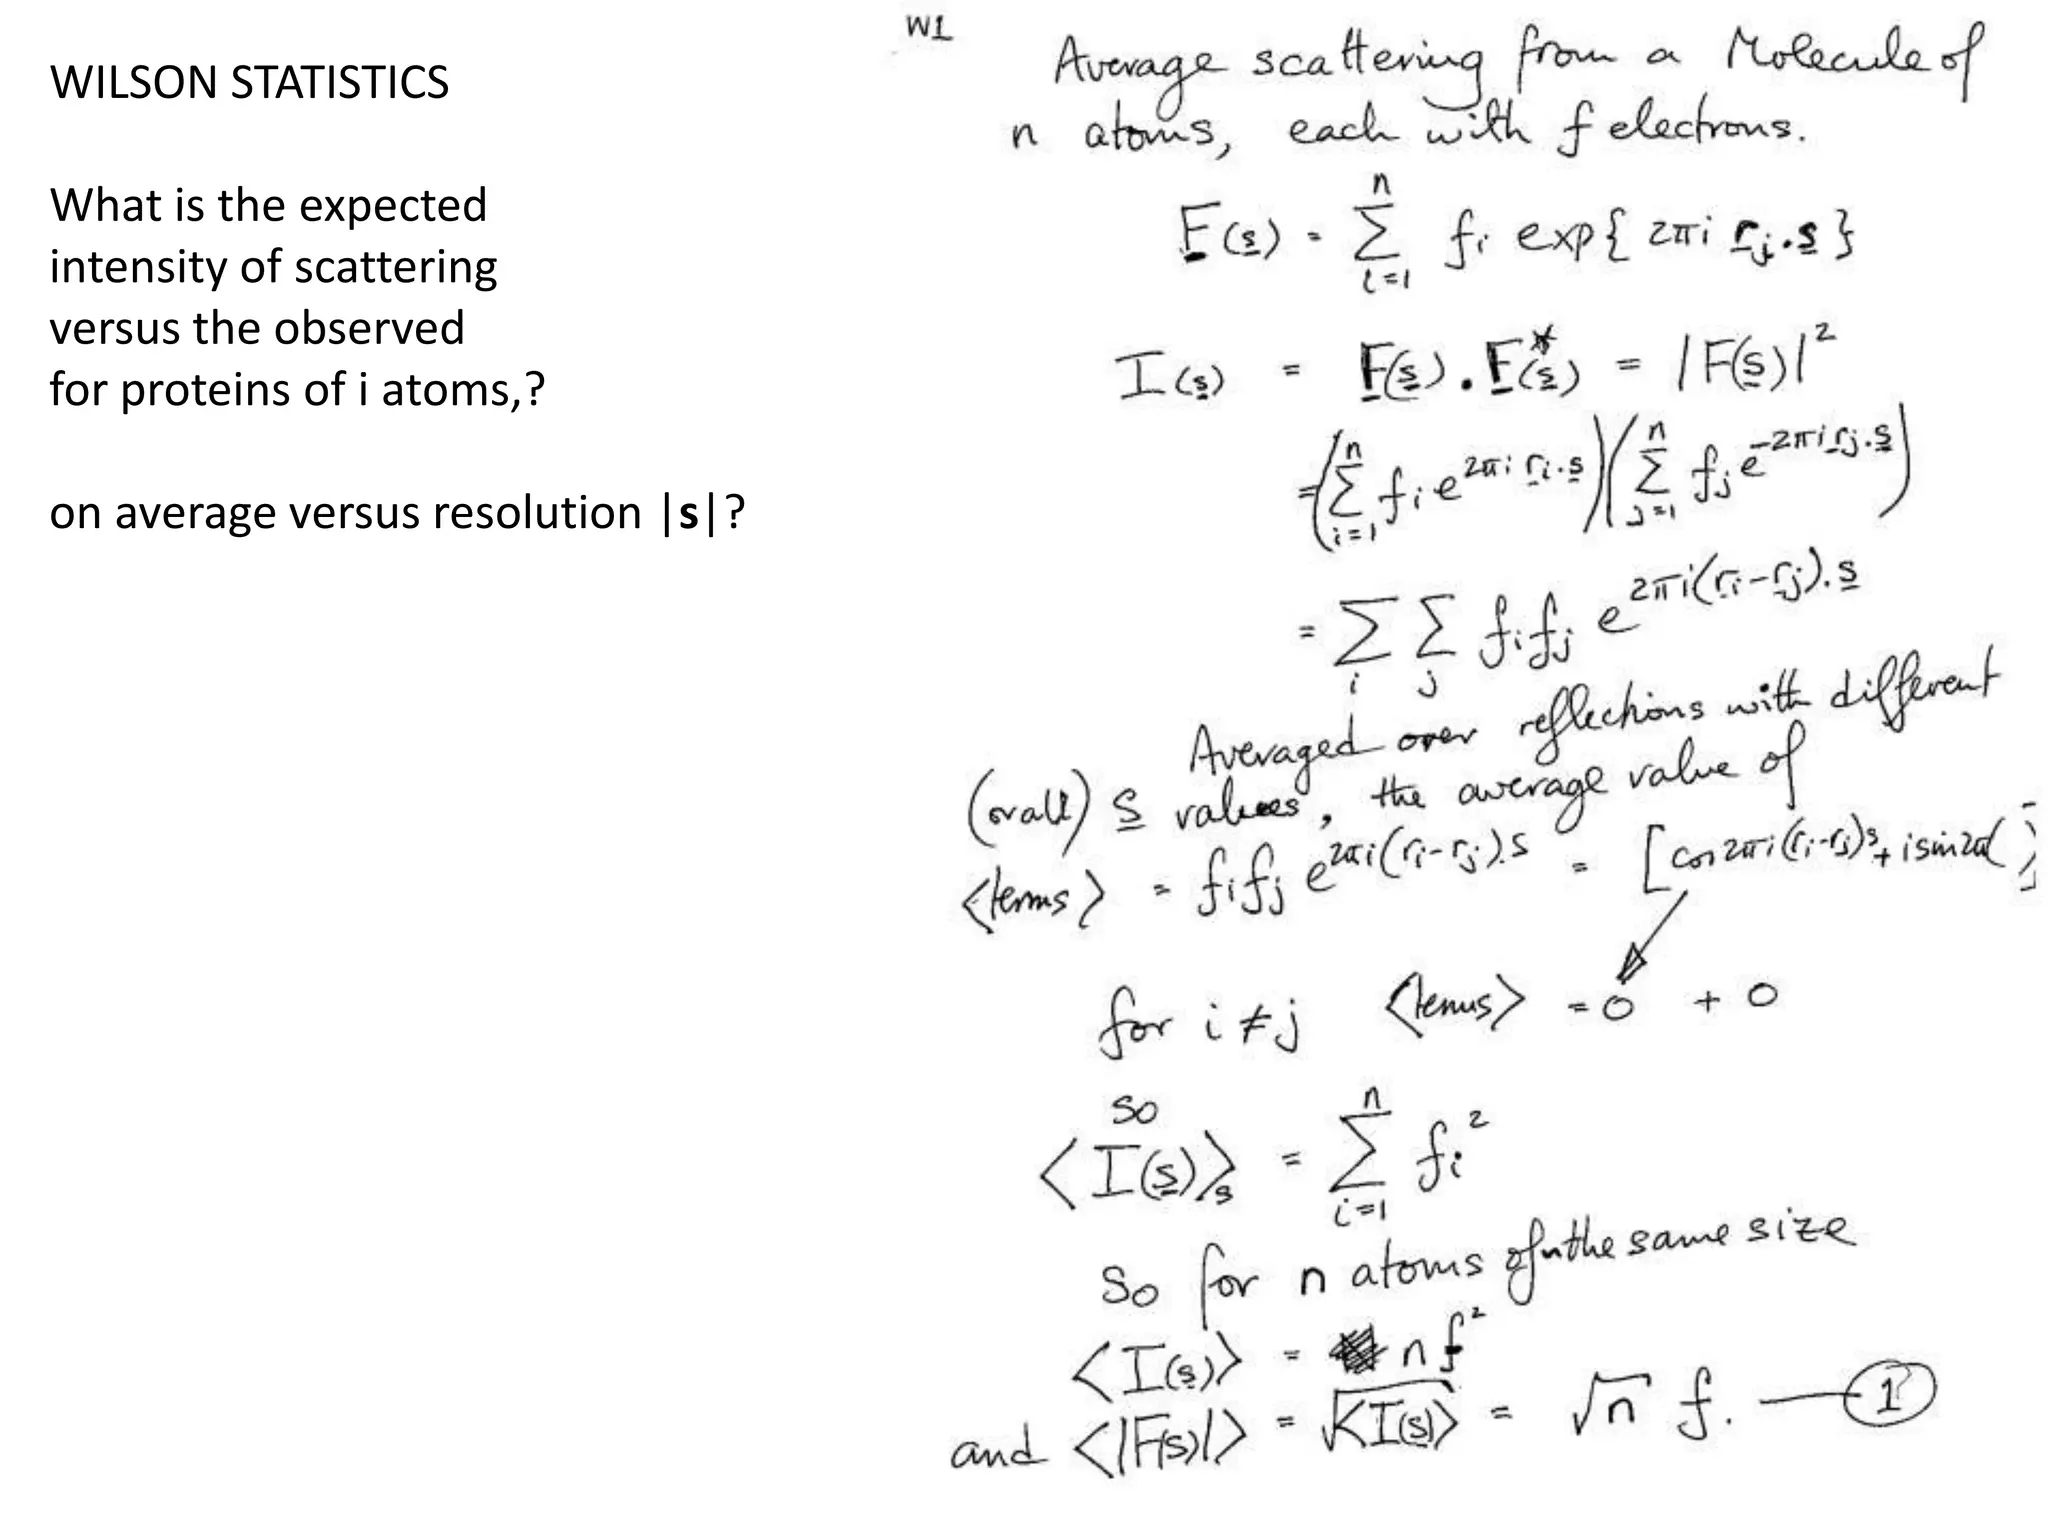 WILSON STATISTICS
What is the expected
intensity of scattering
versus the observed
for proteins of i atoms,?
on average versus resolution |s|?
W1
Average scattering from a Molecule of
n atoms, each with f electrons.
F(s) = ∑ᵢ₌₁ⁿ fᵢ exp{ 2πi rⱼ.s }
I(s) = F(s).F*(s) = |F(s)|²
= (∑ᵢ₌₁ⁿ fᵢ e^{2πi rᵢ.s})(∑ⱼ₌₁ⁿ fⱼ e^{-2πi rⱼ.s})
= ∑ᵢ ∑ⱼ fᵢfⱼ e^{2πi(rᵢ-rⱼ).s}
Averaged over reflections with different
(or all) s values, the average value of
<terms> = fᵢfⱼ e^{2πi(rᵢ-rⱼ).s} = [cos 2πi(rᵢ-rⱼ)s + i sin 2π( )]
for i ≠ j <terms> = 0 + 0
so
<I(s)>ₛ = ∑ᵢ₌₁ⁿ fᵢ²
So for n atoms of the same size
<I(s)> = n f²
and <|F(s)|> = √<I(s)> = √n f. — 1